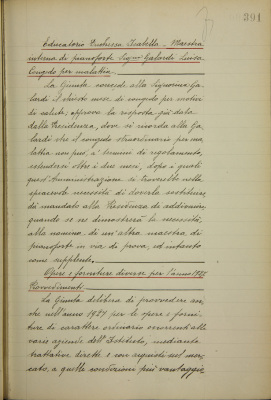 391
Educatorio Duchessa Isabella. Maestra
interna di pianoforte Sigra Galardi Luisa.
Congedo per malattia.
La Giunta concede alla Signorina Ga-
lardi il chiesto mese di congedo per motivi
di salute, approva la risposta già data
dalla Presidenza, dove si ricorda alla Ga-
lardi che il congedo straordinario per ma-
lattia non può, a termini di regolamento,
estendersi oltre i due mesi, dopo i quali
quest'Amministrazione si troverebbe nella
spiacevole necessità di doverla sostituire;
dà mandato alla Presidenza di addivenire
quando se ne dimostrerà la necessità,
alla nomina di un'altra maestra di
pianoforte in via di prova, ed intanto
come supplente.
Opere e forniture diverse per l'anno 1927
Provvedimenti.
La Giunta delibera di provvedere an-
che nell'anno 1927 per le opere e forni-
ture di carattere ordinario occorrenti alle
varie aziende dell'Istituto, mediante
trattative dirette e con acquisti nel mer-
cato, a quelle condizioni più vantaggio